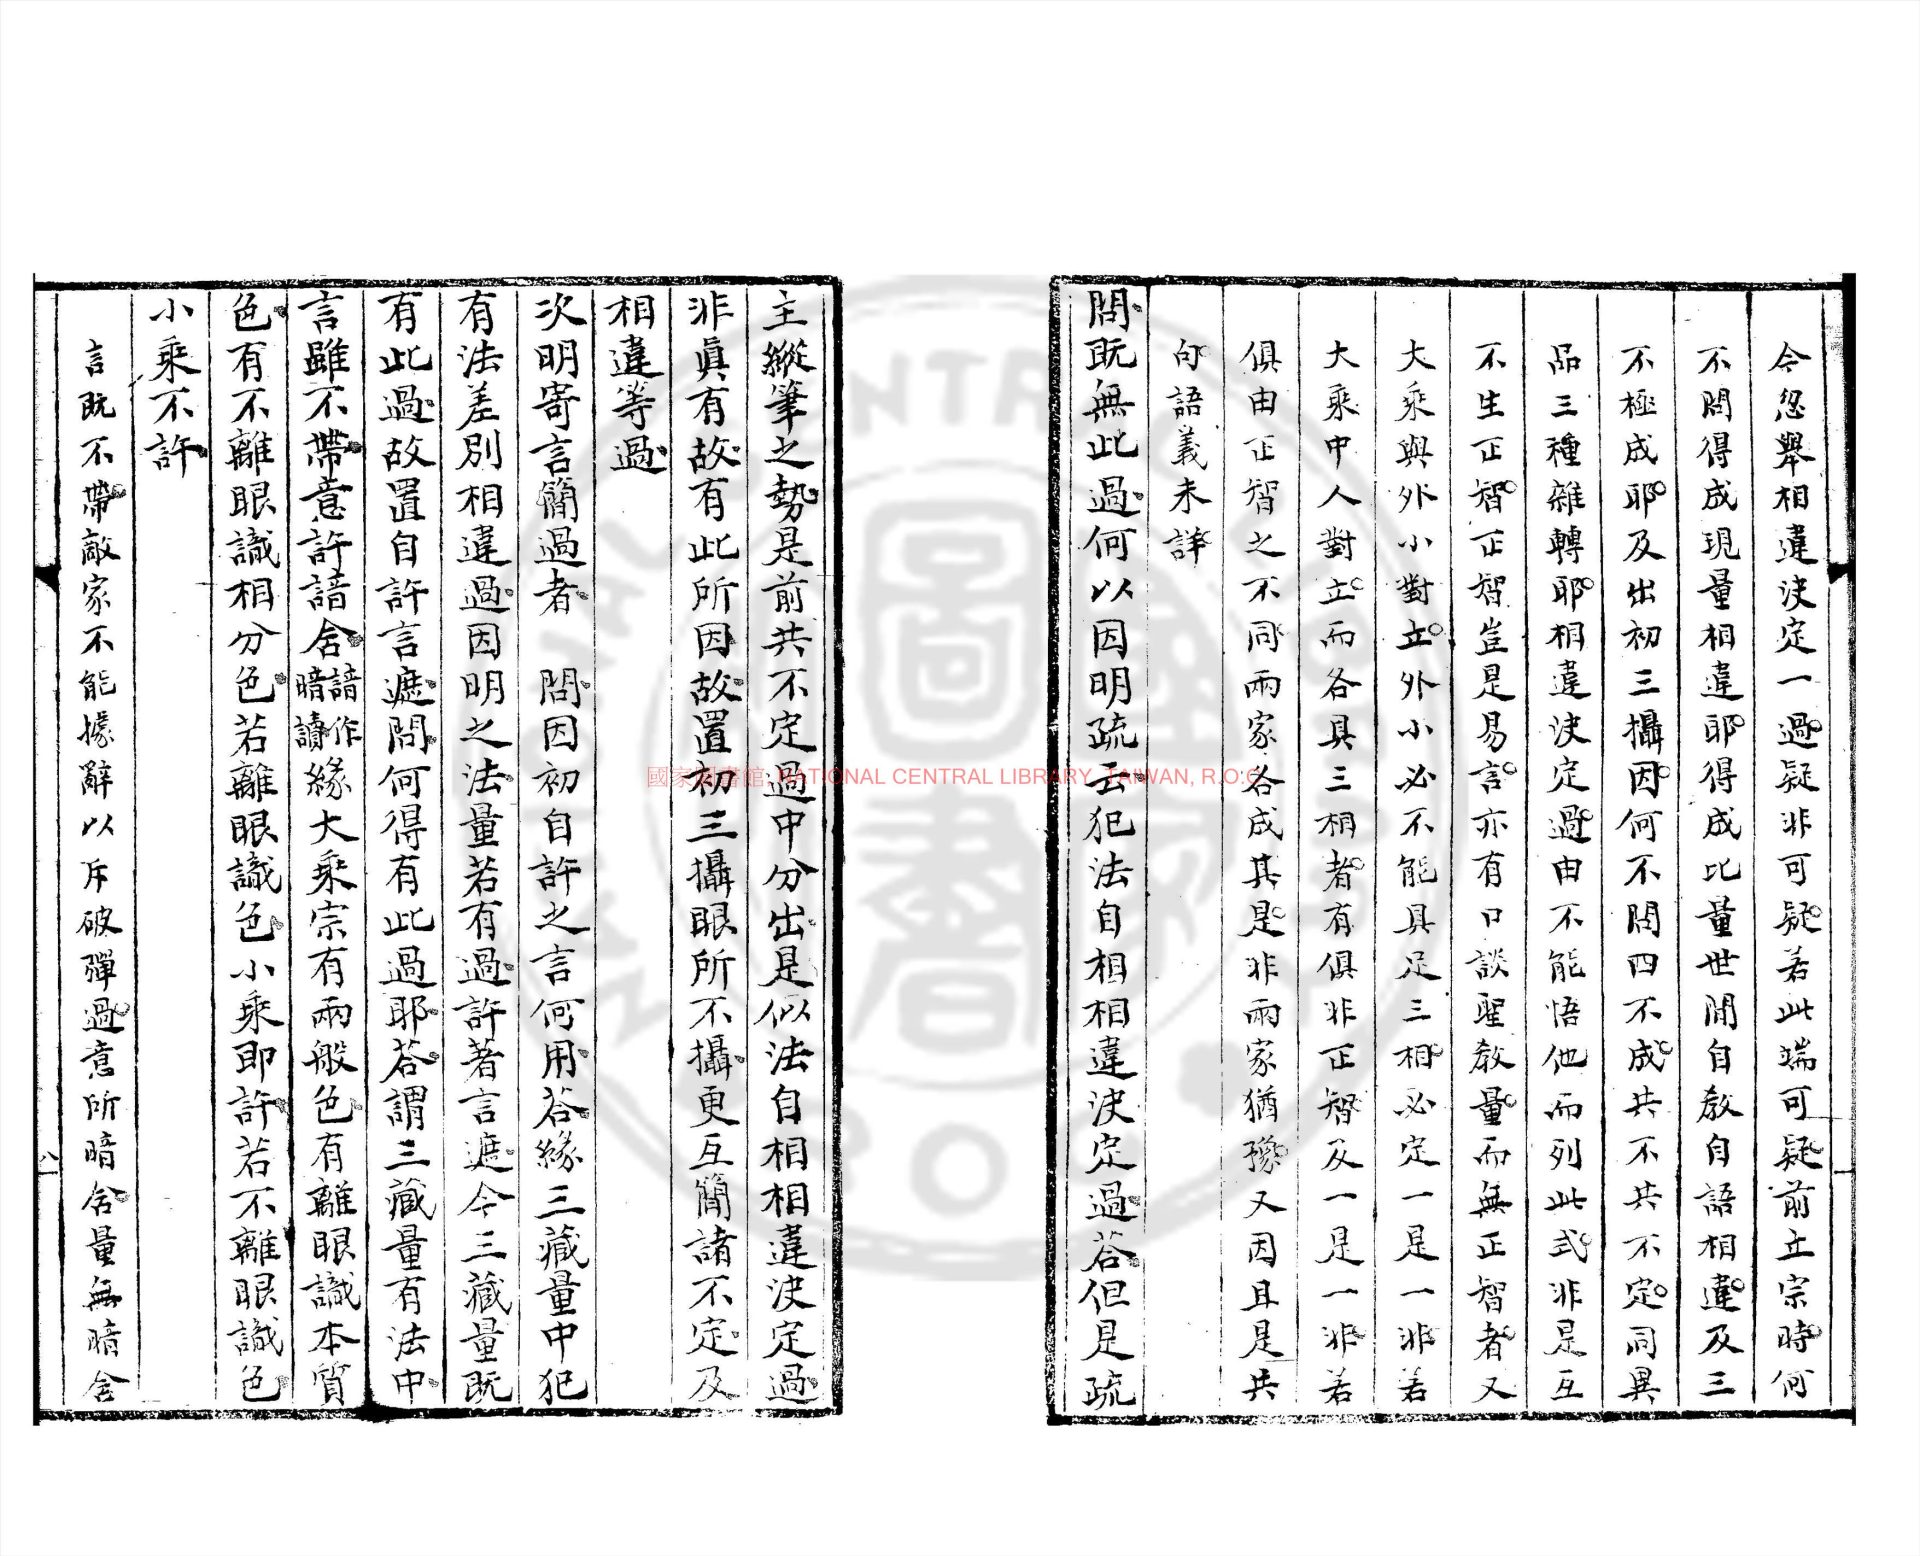 今忽舉相違決定一過疑非可疑若此端可疑前立宗時何
不問得成現量相違耶得成比量世間自教自語相違及三
不極成耶及出初三攝因何不問四不成共不共不定同異
品三種雜轉耶相違決定過由不能悟他而列此式非是互
不生正智正智豈是易言亦有口談聖教量而無正智者又
大乘與外小對立外小必不能具足三相必定一是一非若
大乘中人對立而各具三相者有俱非正智及一是一非若
俱由正智之不同兩家各成其是非兩家猶豫又因且是共
句語義未詳
問既無此過何以因明疏云犯法自相相違決定過荅但是疏
主縱筆之勢是前共不定過中分出是似法自相相違決定過
非眞有故有此所因故置初三攝眼所不攝更互簡諸不定及
相違等過
次明寄言簡過者 問因初自許之言何用荅緣三藏量中犯
有法差別相違過因明之法量若有過許著言遮今三藏量既
有此過故置自許言遮問何得有此過耶荅謂三藏量有法中
言雖不帶意許諳含諳作暗讀緣大乘宗有兩般色有離眼識本質
色有不離眼識相分色若離眼識色小乘即許若不離眼識色
小乘不許
言既不帶敵家不能據辭以斥破彈過意所暗含量無暗含
八
國家圖書館, NATIONAL CENTRAL LIBRARY, TAIWAN, R.O.C.